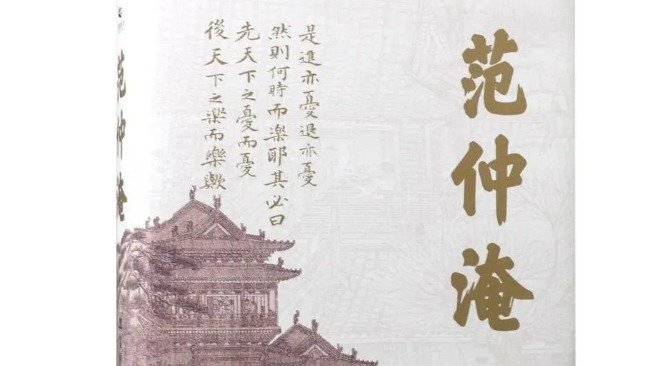 范仲淹
是進亦憂退亦憂
然則何時而楽耶其必曰
先天下之憂而憂
後天下之楽而樂歟
范仲淹